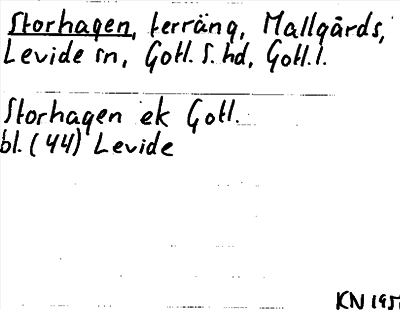 Storhagen, terräng, Mallgårds,
Levide sn, Gotl. S. hd, Gotl. l.
Storhagen ek Gotl.
bl. (44) Levide
KN